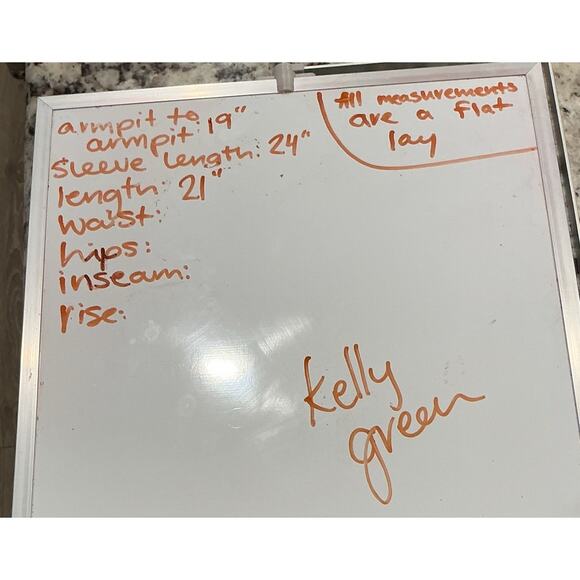 armpit to
armpit: 19"
sleeve length: 24"
length: 21"
waist:
hips:
inseam:
rise:
All measurements
are a flat
lay
kelly
green